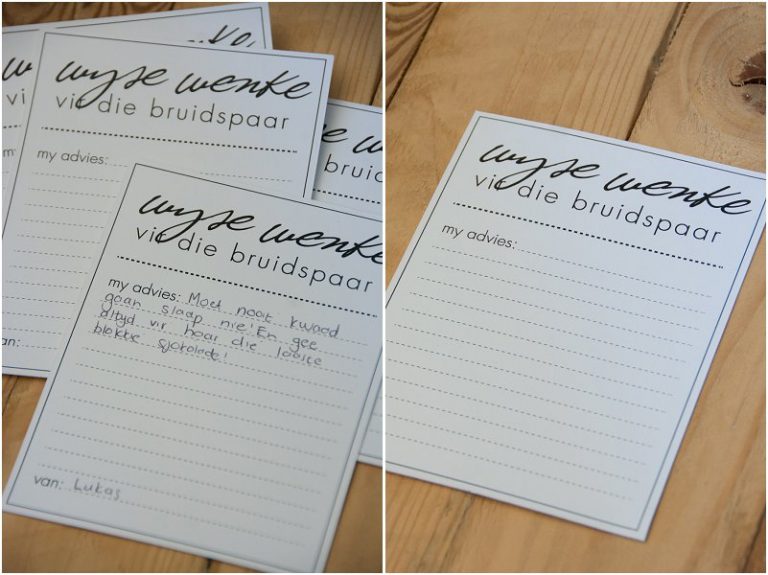 wyse wenke
vir die bruidspaar
my advies:
wyse wenke
vir die bruidspaar
my advies: Moet nooit kwaad
gaan slaap nie! En gee
altyd vir haar die laaste
blokkie sjokolade!
van: Lukas
wyse wenke
vir die bruidspaar
my advies: